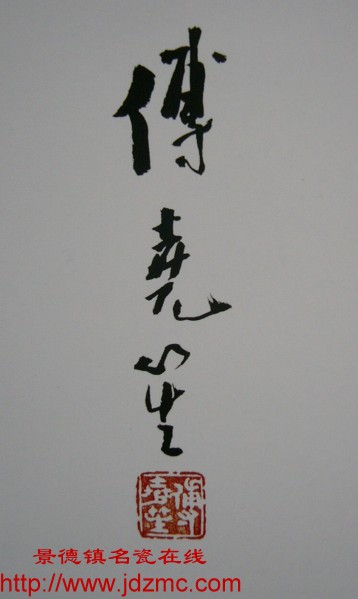 傅堯笙
傅堯笙
景德镇名瓷在线
http://www.jdzmc.com